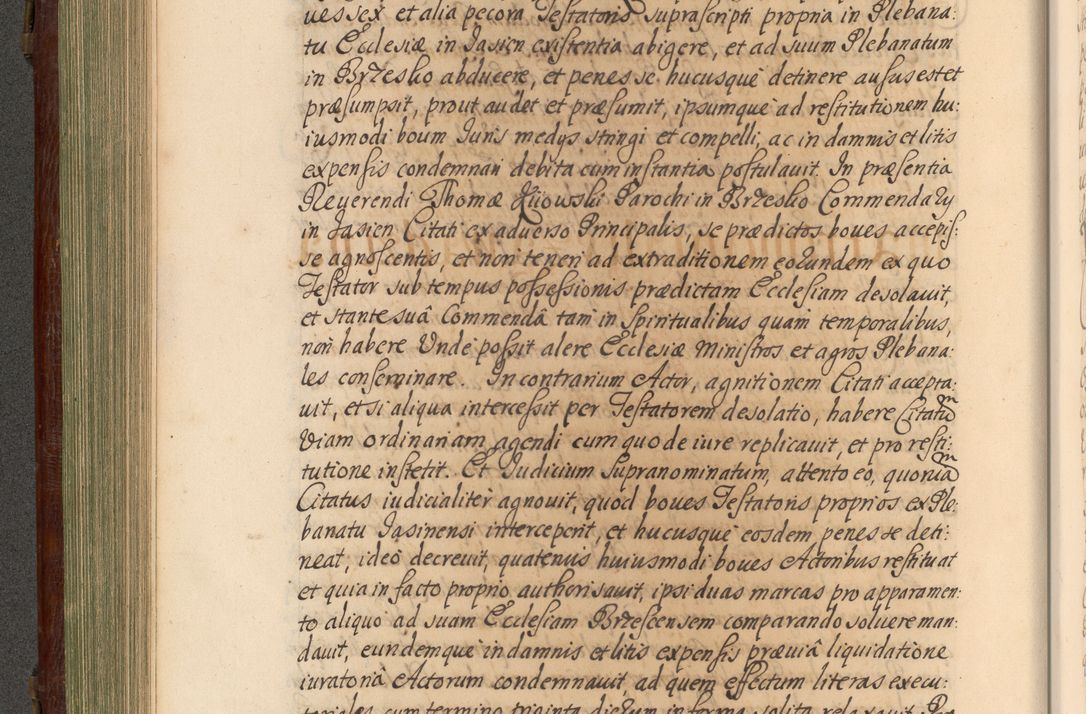 ues sex et alia pecora Testatoris suprascripti propria in Plebana:
tu Ecclesiæ in Jasien existentia abigere, et ad suum Plebanatum
in Brzesko abducere, et penes se hucusque detinere ausus est et
præsumpsit, prout audet et præsumit, ipsumque ad restitutionem hu:
iusmodi boum Juris medijs stringi et compelli, ac in damnis et litis
expensis condemnari debita cum instantia postulauit. In præsentia
Reuerendi Thomæ Kijowski Parochi in Brzesko Commendarij
in Jasien Citati ex aduerso Principalis, se prædictos boues accepis:
se agnoscentis, et non teneri ad extraditionem eorundem ex quo
Testator sub tempus possessionis prædictam Ecclesiam desolauit,
et stante suâ Commendâ tam in spiritualibus quam temporalibus,
non habere Vnde possit alere Ecclesiæ Ministros et agros Plebana:
les conseminare. In contrarium Actor, agnitionem Citati accepta:
uit, et si aliqua intercessit per Testatorem desolatio, habere Citatum
Viam ordinariam agendi cum quo de iure replicauit, et pro resti:
tutione institit. Et Judicium supranominatum, attento eo, quoniam
Citatus iudicialiter agnouit, quod boues Testatoris proprios ex Ple:
banatu Jasinensi interceperit, et hucusque eosdem penes se deti:
neat, ideo decreuit, quatenus huiusmodi boues Actoribus restituat
et quia in facto proprio authorisauit, ipsi duas marcas pro apparamen:
to aliquo ad suam Ecclesiam Brzescensem comparando soluere man:
dauit, eundemque in damnis et litis expensis præuiâ liquidatione
iuratoria Actorum condemnauit, ad quem effectum literas execu:
toriales cum termino triginta dierum in forma solita relaxauit.